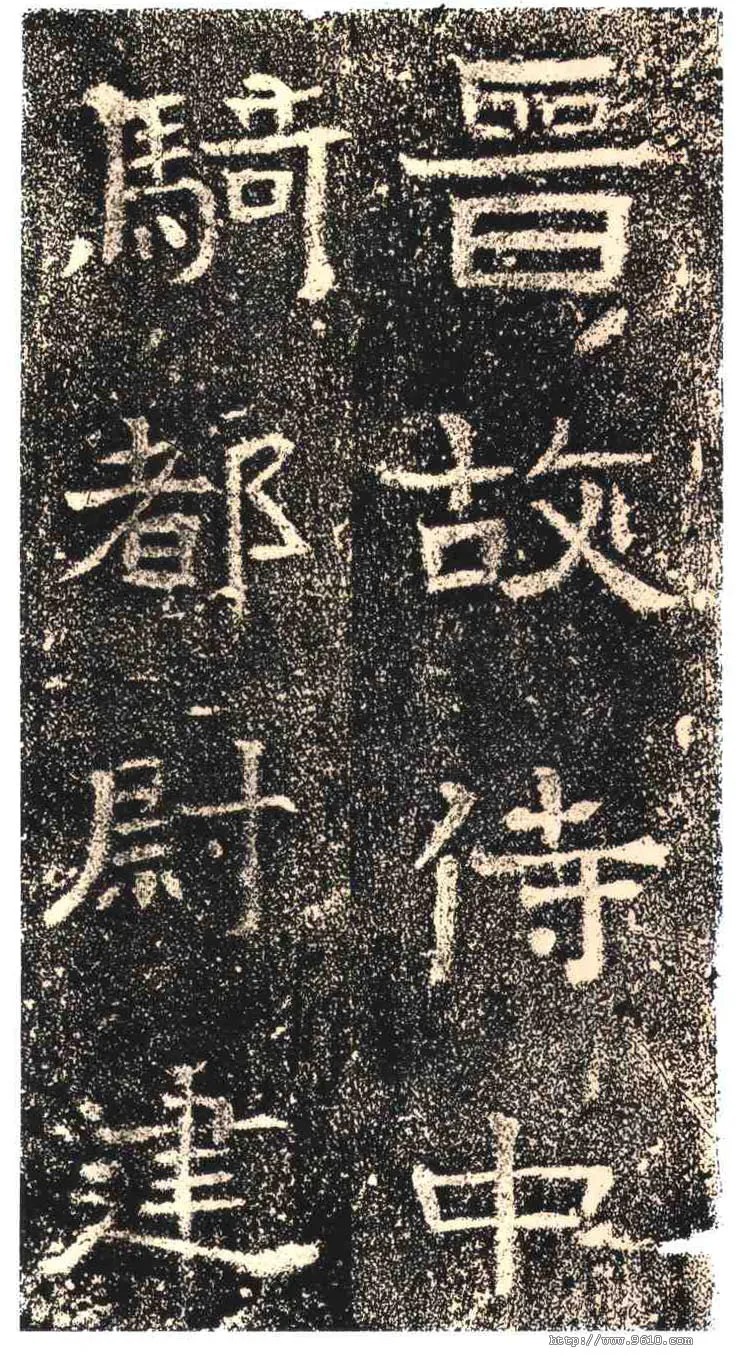 晉故侍中
騎都尉建
http://www.9610.com